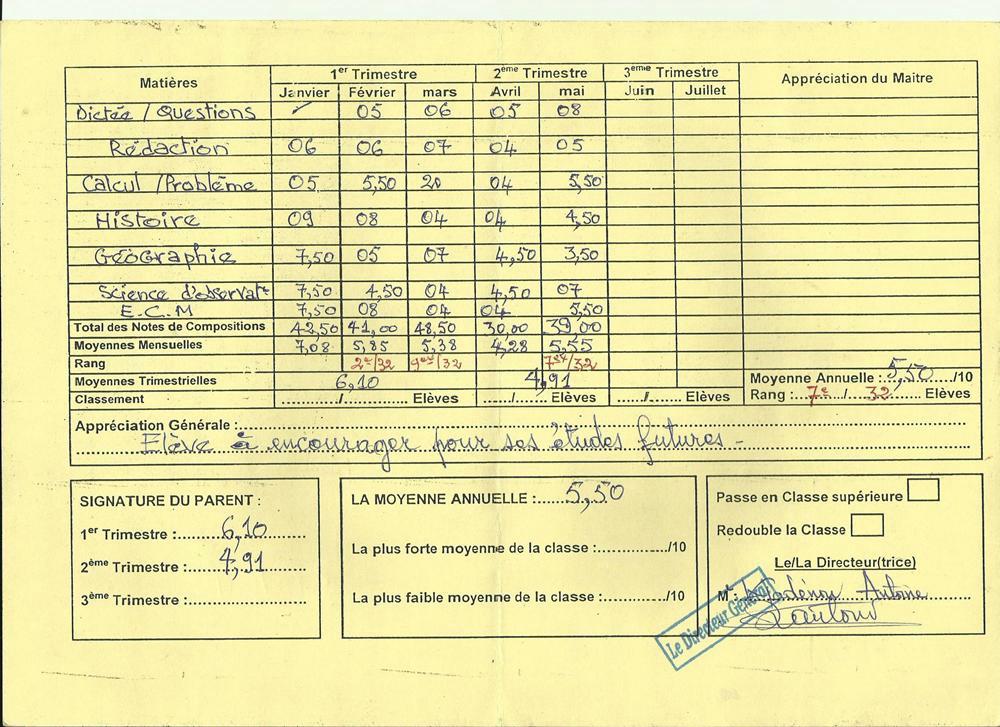 Matières 1er Trimestre 2ème Trimestre 3ème Trimestre Appréciation du Maitre
Janvier Février mars Avril mai Juin Juillet
Dictée / Questions 05 06 05 08
Rédaction 06 06 07 04 05
Calcul / Problème 05 5,50 20 04 5,50
Histoire 09 08 04 04 4,50
Géographie 7,50 05 07 4,50 3,50
Science d'observat° 7,50 4,50 04 4,50 07
E.C.M 7,50 08 04 04 5,50
Total des Notes de Compositions 42,50 41,00 48,50 30,00 39,00
Moyennes Mensuelles 7,08 5,85 5,38 4,28 5,55
Rang 2e/32 /32 /32
Moyennes Trimestrielles 6,10 4,91 Moyenne Annuelle : 5,50 /10
Classement ........../.......... Elèves ....../...... Elèves ....../........ Elèves Rang : 7e / 32 Elèves
Appréciation Générale :
Elève à encourager pour ses études futures -
SIGNATURE DU PARENT :
1er Trimestre : 6,10
2ème Trimestre : 4,91
3ème Trimestre :
LA MOYENNE ANNUELLE : 5,50
La plus forte moyenne de la classe :............../10
La plus faible moyenne de la classe :............/10
Passe en Classe supérieure
Redouble la Classe
Le/La Directeur(trice)
M : Antoine
Le Directeur Général